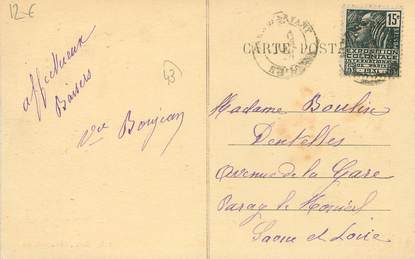 12 €
43
affectueux
Baisers
Vve Boujean
CARTE POSTA
15c
EXPOSITION
COLONIALE
INTERNATIONALE
PARIS 1931
Madame Boulin
Dentelles
Avenue de la Gare
Paray le Monial
Saone et Loire